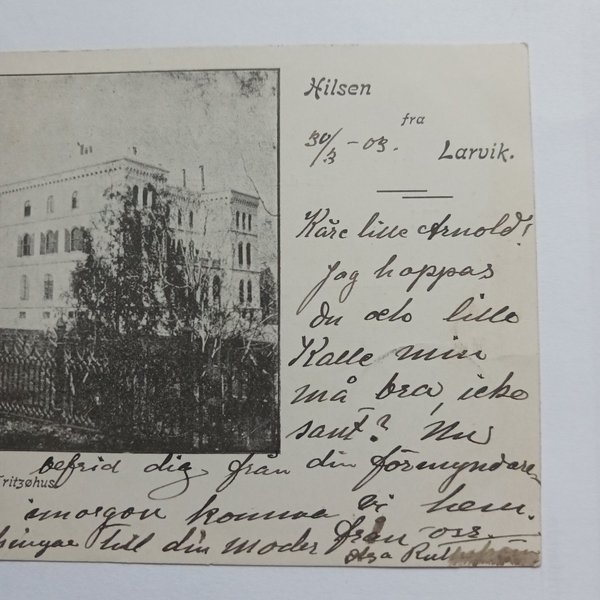 Hilsen
fra
30/3 - 03. Larvik.
Käre lille Arnold!
Jag hoppas
du och lille
Kalle min
må bra, icke
sant? Nu
befrid dig från din förmyndare
Fritzøhus.
imorgon komma vi hem.
till din moder från oss.